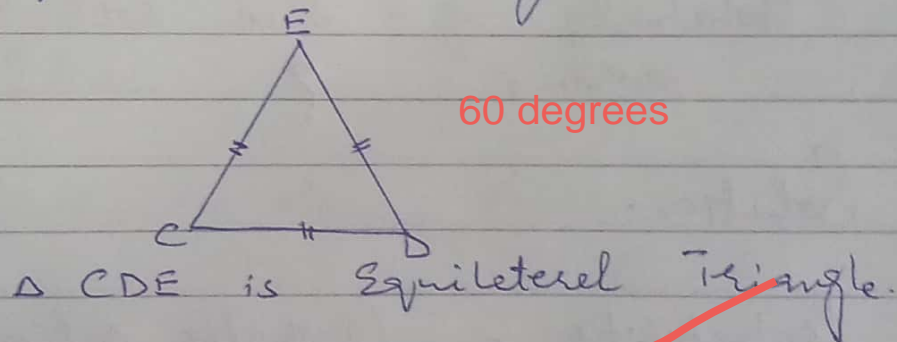 E
60 degrees
C
D
Δ CDE is Equileterel Triangle.